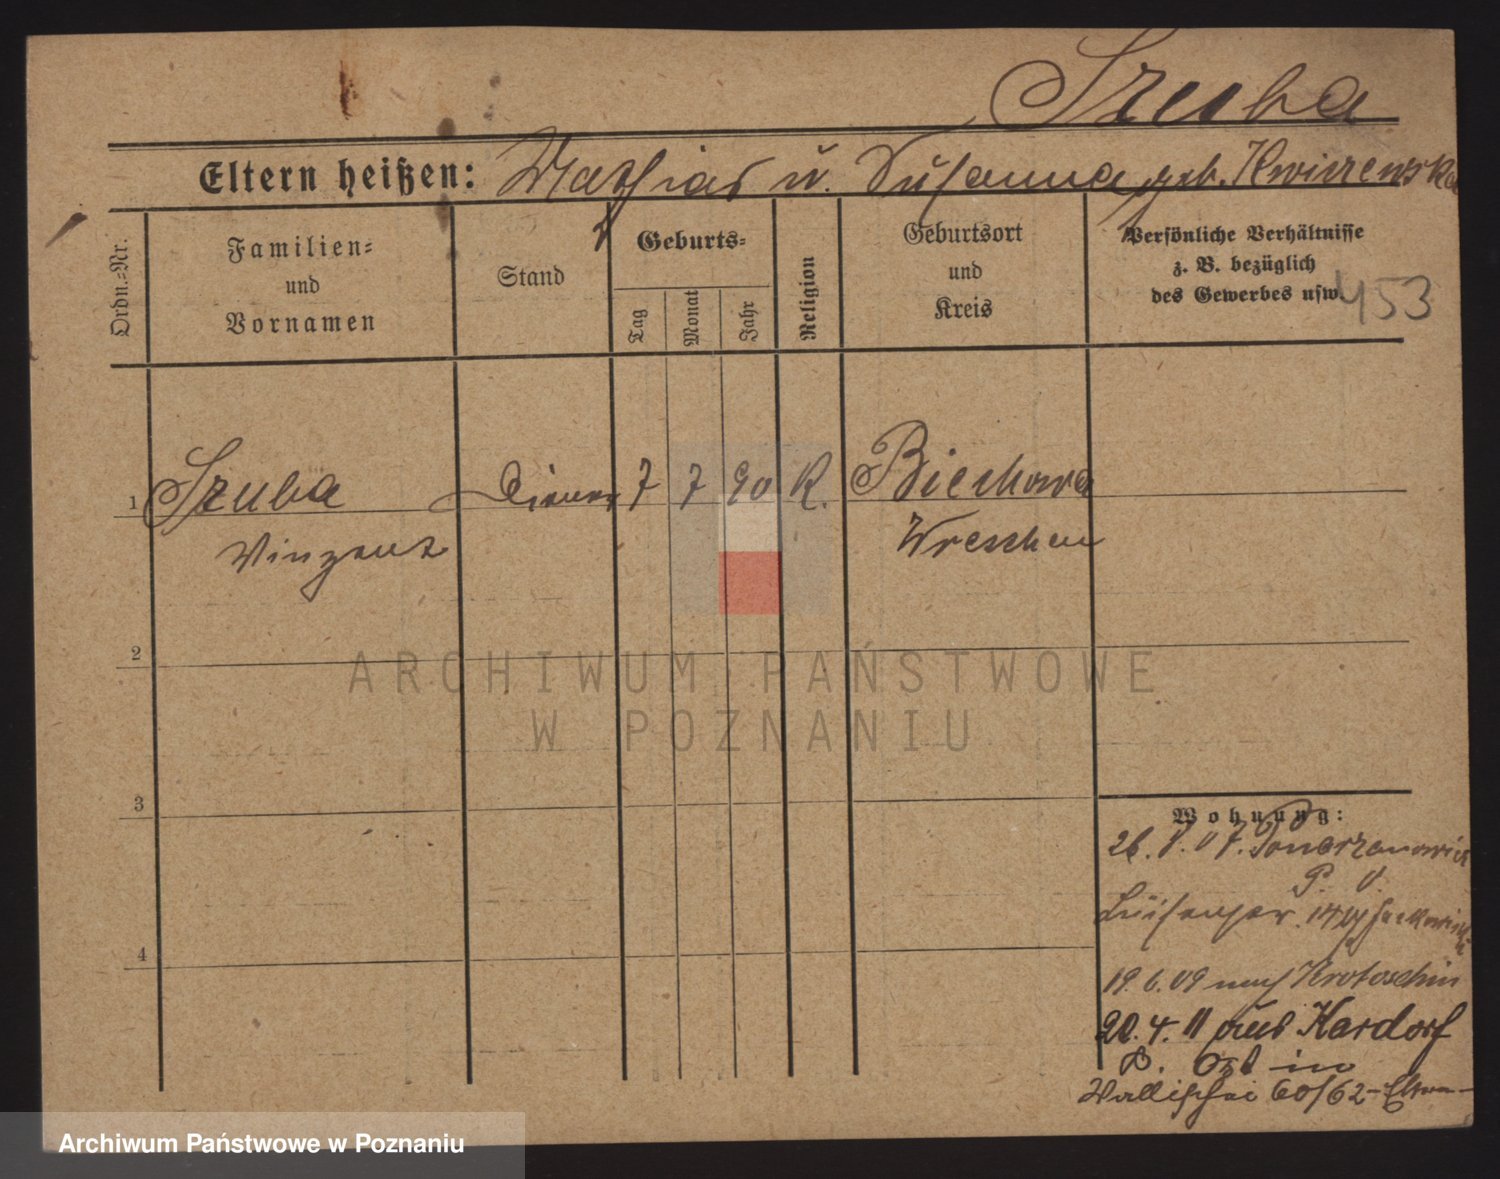 Szuba
Eltern heißen: Mathias u. Susanna geb. Kwirrenska
Ordn.-Nr.
Familien-
und
Vornamen
Stand
Geburts-
Tag
Monat
Jahr
Religion
Geburtsort
und
Kreis
Persönliche Verhältnisse
z. B. bezüglich
des Gewerbes usw.
453
1 Szuba Diener 7 7 90 K. Biechowo
Vinzent Wreschen
2
3
4
Wohnung:
26. 8. 07.
P. V.
Luisenstr. 14
19. 6. 09 nach Krotoschin
20. 4. 11 aus Kardorf
Wallischei 60/62 - Eltern -
ARCHIWUM PAŃSTWOWE
W POZNANIU
Archiwum Państwowe w Poznaniu